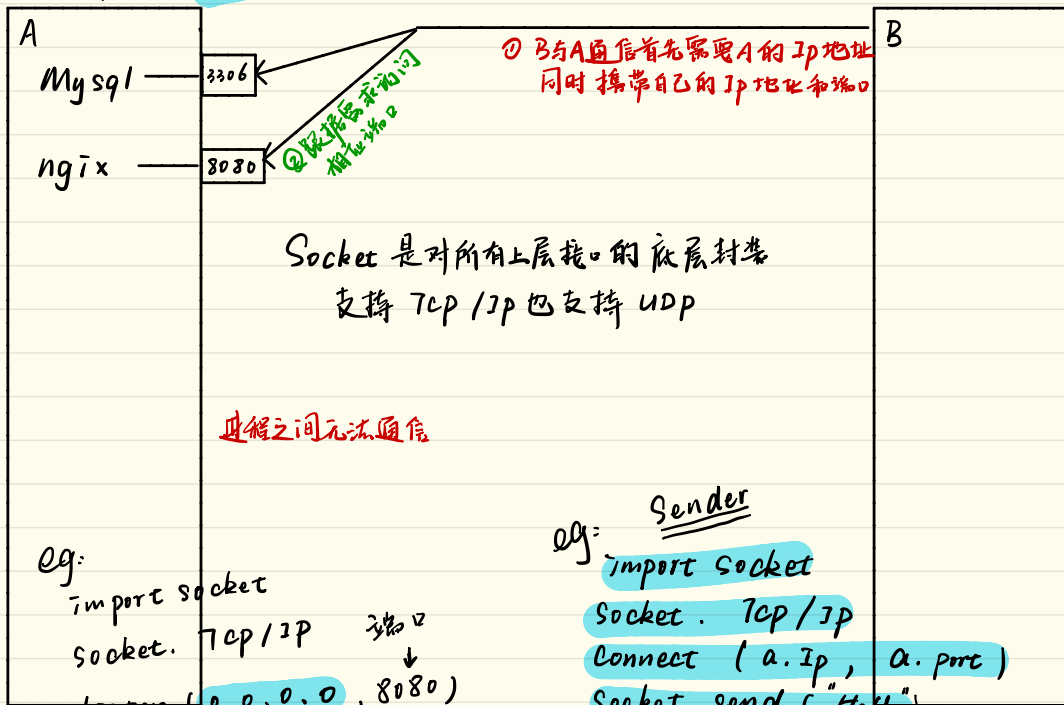 A
B
Mysql
3306
ngix
8080
① B与A通信首先需要A的Ip地址
同时携带自己的Ip地址和端口
②跟据需求访问
相应端口
Socket 是对所有上层接口的底层封装
支持 Tcp/Ip也支持 UDP
进程之间无法通信
eg:
import socket
socket. Tcp/IP
端口
0.0.0.0, 8080)
eg: Sender
import Socket
Socket. Tcp/Ip
Connect (a.Ip, a.port)
Socket send ("